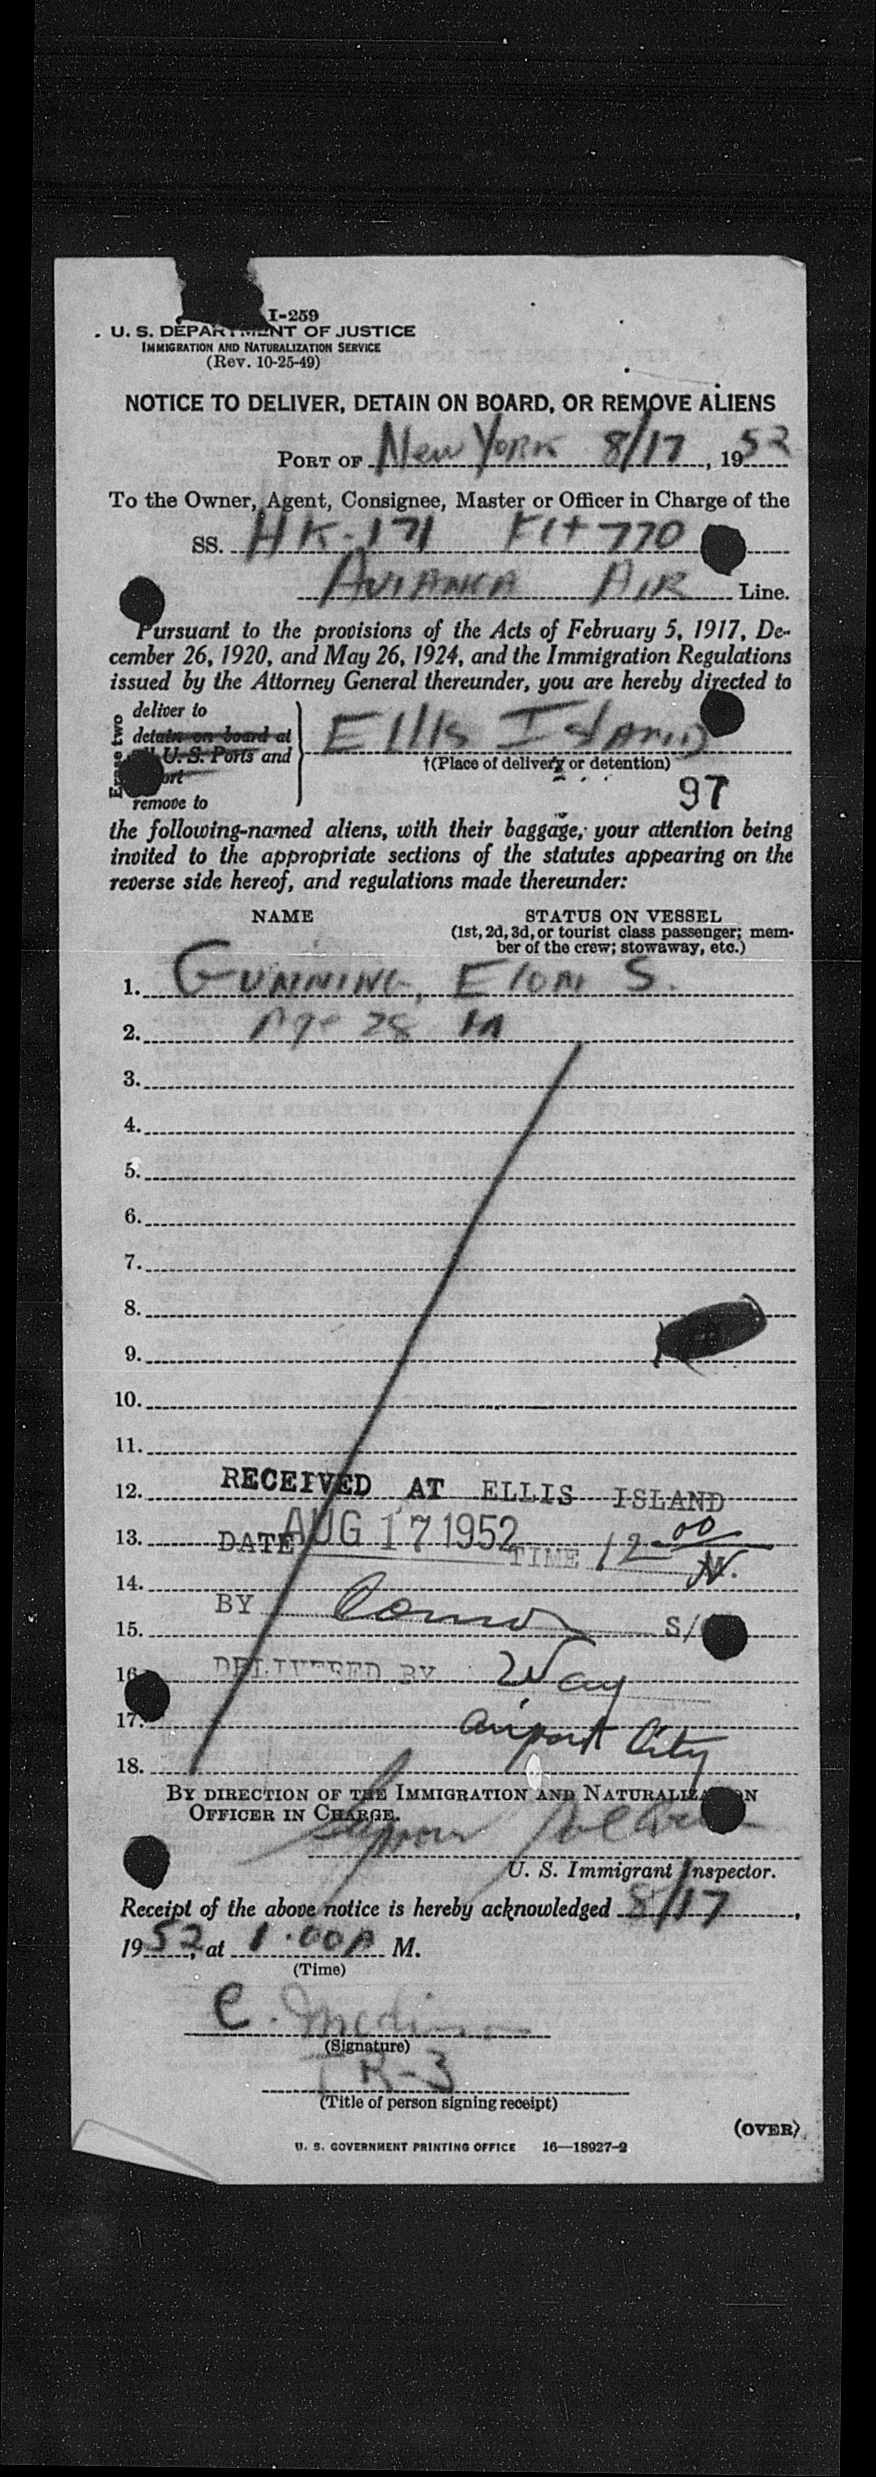 I-259
U. S. DEPARTMENT OF JUSTICE
IMMIGRATION AND NATURALIZATION SERVICE
(Rev. 10-25-49)
NOTICE TO DELIVER, DETAIN ON BOARD, OR REMOVE ALIENS
PORT OF New York 8/17, 1952
To the Owner, Agent, Consignee, Master or Officer in Charge of the
SS. HK-171 Flt 770
AVIANCA AIR Line.
Pursuant to the provisions of the Acts of February 5, 1917, De-
cember 26, 1920, and May 26, 1924, and the Immigration Regulations
issued by the Attorney General thereunder, you are hereby directed to
Erase two
deliver to
detain on board at
U. S. Ports and
remove to
Ellis Island
†(Place of delivery or detention)
97
the following-named aliens, with their baggage, your attention being
invited to the appropriate sections of the statutes appearing on the
reverse side hereof, and regulations made thereunder:
NAME STATUS ON VESSEL
(1st, 2d, 3d, or tourist class passenger; mem-
ber of the crew; stowaway, etc.)
1. GUNNING, S.
2. Age 28 M
3.
4.
5.
6.
7.
8.
9.
10.
11.
12. RECEIVED AT ELLIS ISLAND
13. DATE AUG 17 1952 TIME 12 00 M.
14.
BY S/
15.
16. DELIVERED BY Way
17. airport City
18.
BY DIRECTION OF THE IMMIGRATION AND NATURALIZATION
OFFICER IN CHARGE.
U. S. Immigrant Inspector.
Receipt of the above notice is hereby acknowledged 8/17,
1952, at 1:00 P M.
(Time)
(Signature)
TR-3
(Title of person signing receipt)
(OVER)
U. S. GOVERNMENT PRINTING OFFICE 16—18927-2